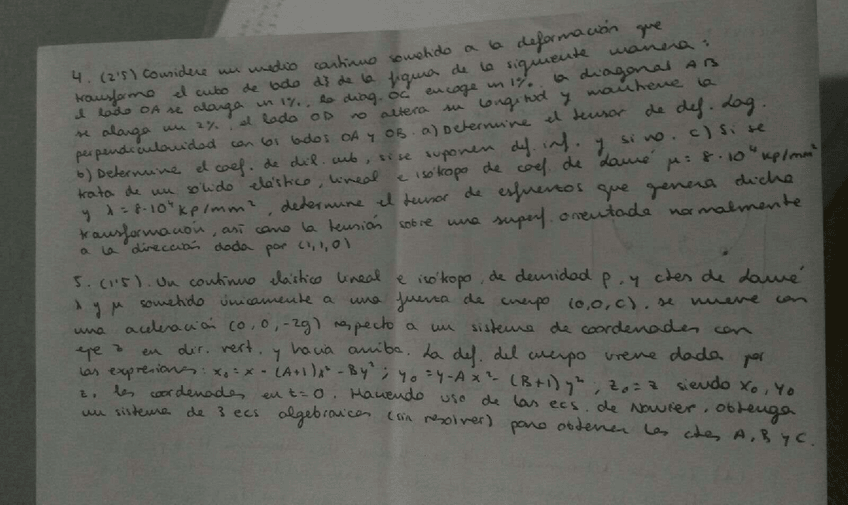 4. (2'5) Considere un medio continuo sometido a la deformación que
transforma el cubo de lado d3 de la figura de la siguiente manera:
el lado OA se alarga un 1%, la diag. OC encoge un 1%, la diagonal AB
se alarga un 2%, el lado OD no altera su longitud y mantiene la
perpendicularidad con los lados OA y OB. a) Determine el tensor de def. Lag.
b) Determine el coef. de dil. cub, si se suponen def. inf. y si no. c) Si se
trata de un sólido elástico, lineal e isótropo de coef. de Lamé μ = 8·10⁴ kp/mm²
y λ = 8·10⁴ kp/mm², determine el tensor de esfuerzos que genera dicha
transformación, así como la tensión sobre una superf. orientada normalmente
a la dirección dada por (1,1,0)
5. (1'5). Un continuo elástico lineal e isótropo, de densidad ρ, y ctes de Lamé
λ y μ sometido únicamente a una fuerza de cuerpo (0,0,C), se mueve con
una aceleración (0,0,-2g) respecto a un sistema de coordenadas con
eje z en dir. vert. y hacia arriba. La def. del cuerpo viene dada por
las expresiones: x₀ = x - (A+1)x² - By²; y₀ = y - Ax² - (B+1)y²; z₀ = z siendo x₀, y₀
z₀ las coordenadas en t=0. Haciendo uso de las ecs. de Navier, obtenga
un sistema de 3 ecs algebraicas (sin resolver) para obtener las ctes A, B y C.